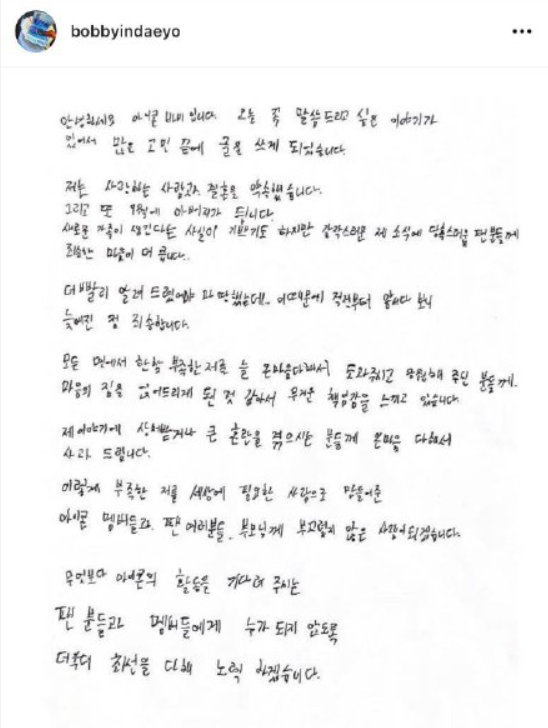 bobbyindaeyo
안녕하세요 아이콘 바비 입니다. 오늘 꼭 말씀드리고 싶은 이야기가
있어서 많은 고민 끝에 글을 쓰게 되었습니다.
저는 사랑하는 사람과 결혼을 약속했습니다.
그리고 또 9월에 아버지가 됩니다.
새로운 가족이 생긴다는 사실이 기쁘기도 하지만 갑작스러운 제 소식에 당혹스러울 팬분들께
죄송한 마음이 더 큽니다.
더 빨리 알려 드렸어야 마땅했는데.. 걱정부터 앞서다 보니
늦어진 점 죄송합니다.
모든 면에서 한참 부족한 저를 늘 온마음다해서 도와주시고 응원해 주신 분들께.
마음의 짐을 얹어드리게 된 것 같아서 무거운 책임감을 느끼고 있습니다
제 이야기에 상처받거나 큰 혼란을 겪으시는 분들께 온마음 다해서
사과 드립니다.
이렇게 부족한 저를 세상에 필요한 사람으로 만들어준
아이콘 멤버들과, 팬 여러분들, 부모님께 부끄럽지 않은 사람이되겠습니다.
무엇보다 아이콘의 활동을 기다려 주시는
팬 분들과 멤버들에게 누가 되지 않도록
더욱더 최선을 다해 노력 하겠습니다.